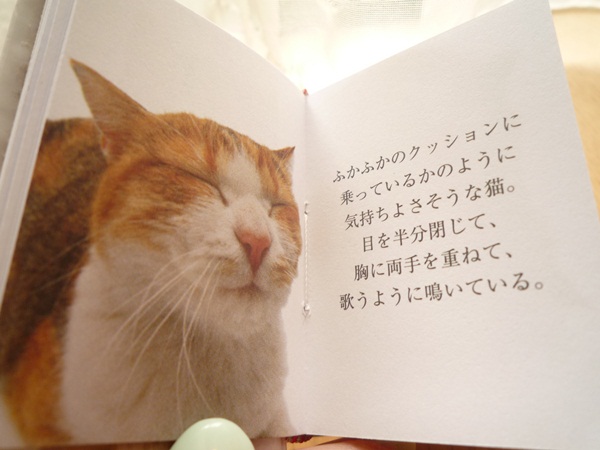 ふかふかのクッションに
乗っているかのように
気持ちよさそうな猫。
目を半分閉じて、
胸に両手を重ねて、
歌うように鳴いている。